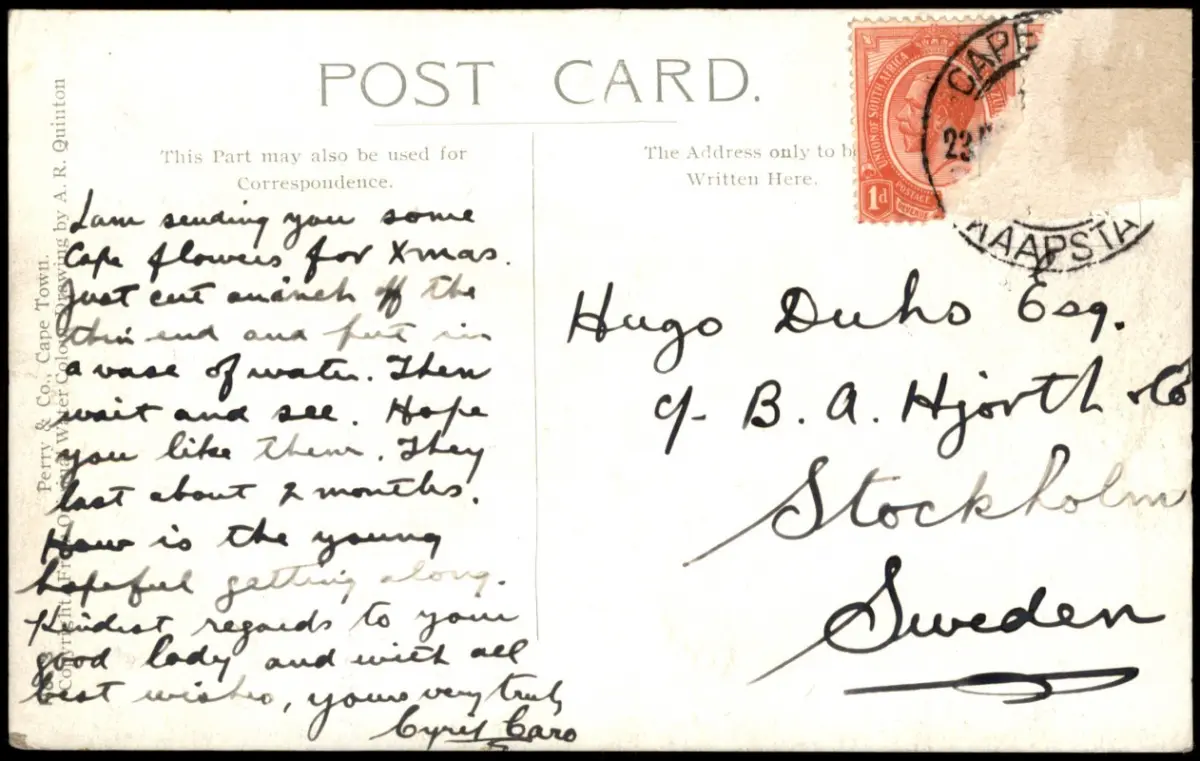 POST CARD.
This Part may also be used for
Correspondence.
The Address only to be
Written Here.
UNION OF SOUTH AFRICA
POSTAGE
1d
CAPE
23
KAAPSTA
I am sending you some
Cape flowers for Xmas.
Just cut an inch off the
thin end and put in
a vase of water. Then
wait and see. Hope
you like them. They
last about 2 months.
How is the young
hopeful getting along.
Kindest regards to your
good lady and with all
best wishes, yours very truly
Cyril Caro
Hugo Duhs Esq.
c/- B. A. Hjorth & Co
Stockholm
Sweden
Perry & Co., Cape Town.
Copyright. From Water Colour Drawing by A. R. Quinton